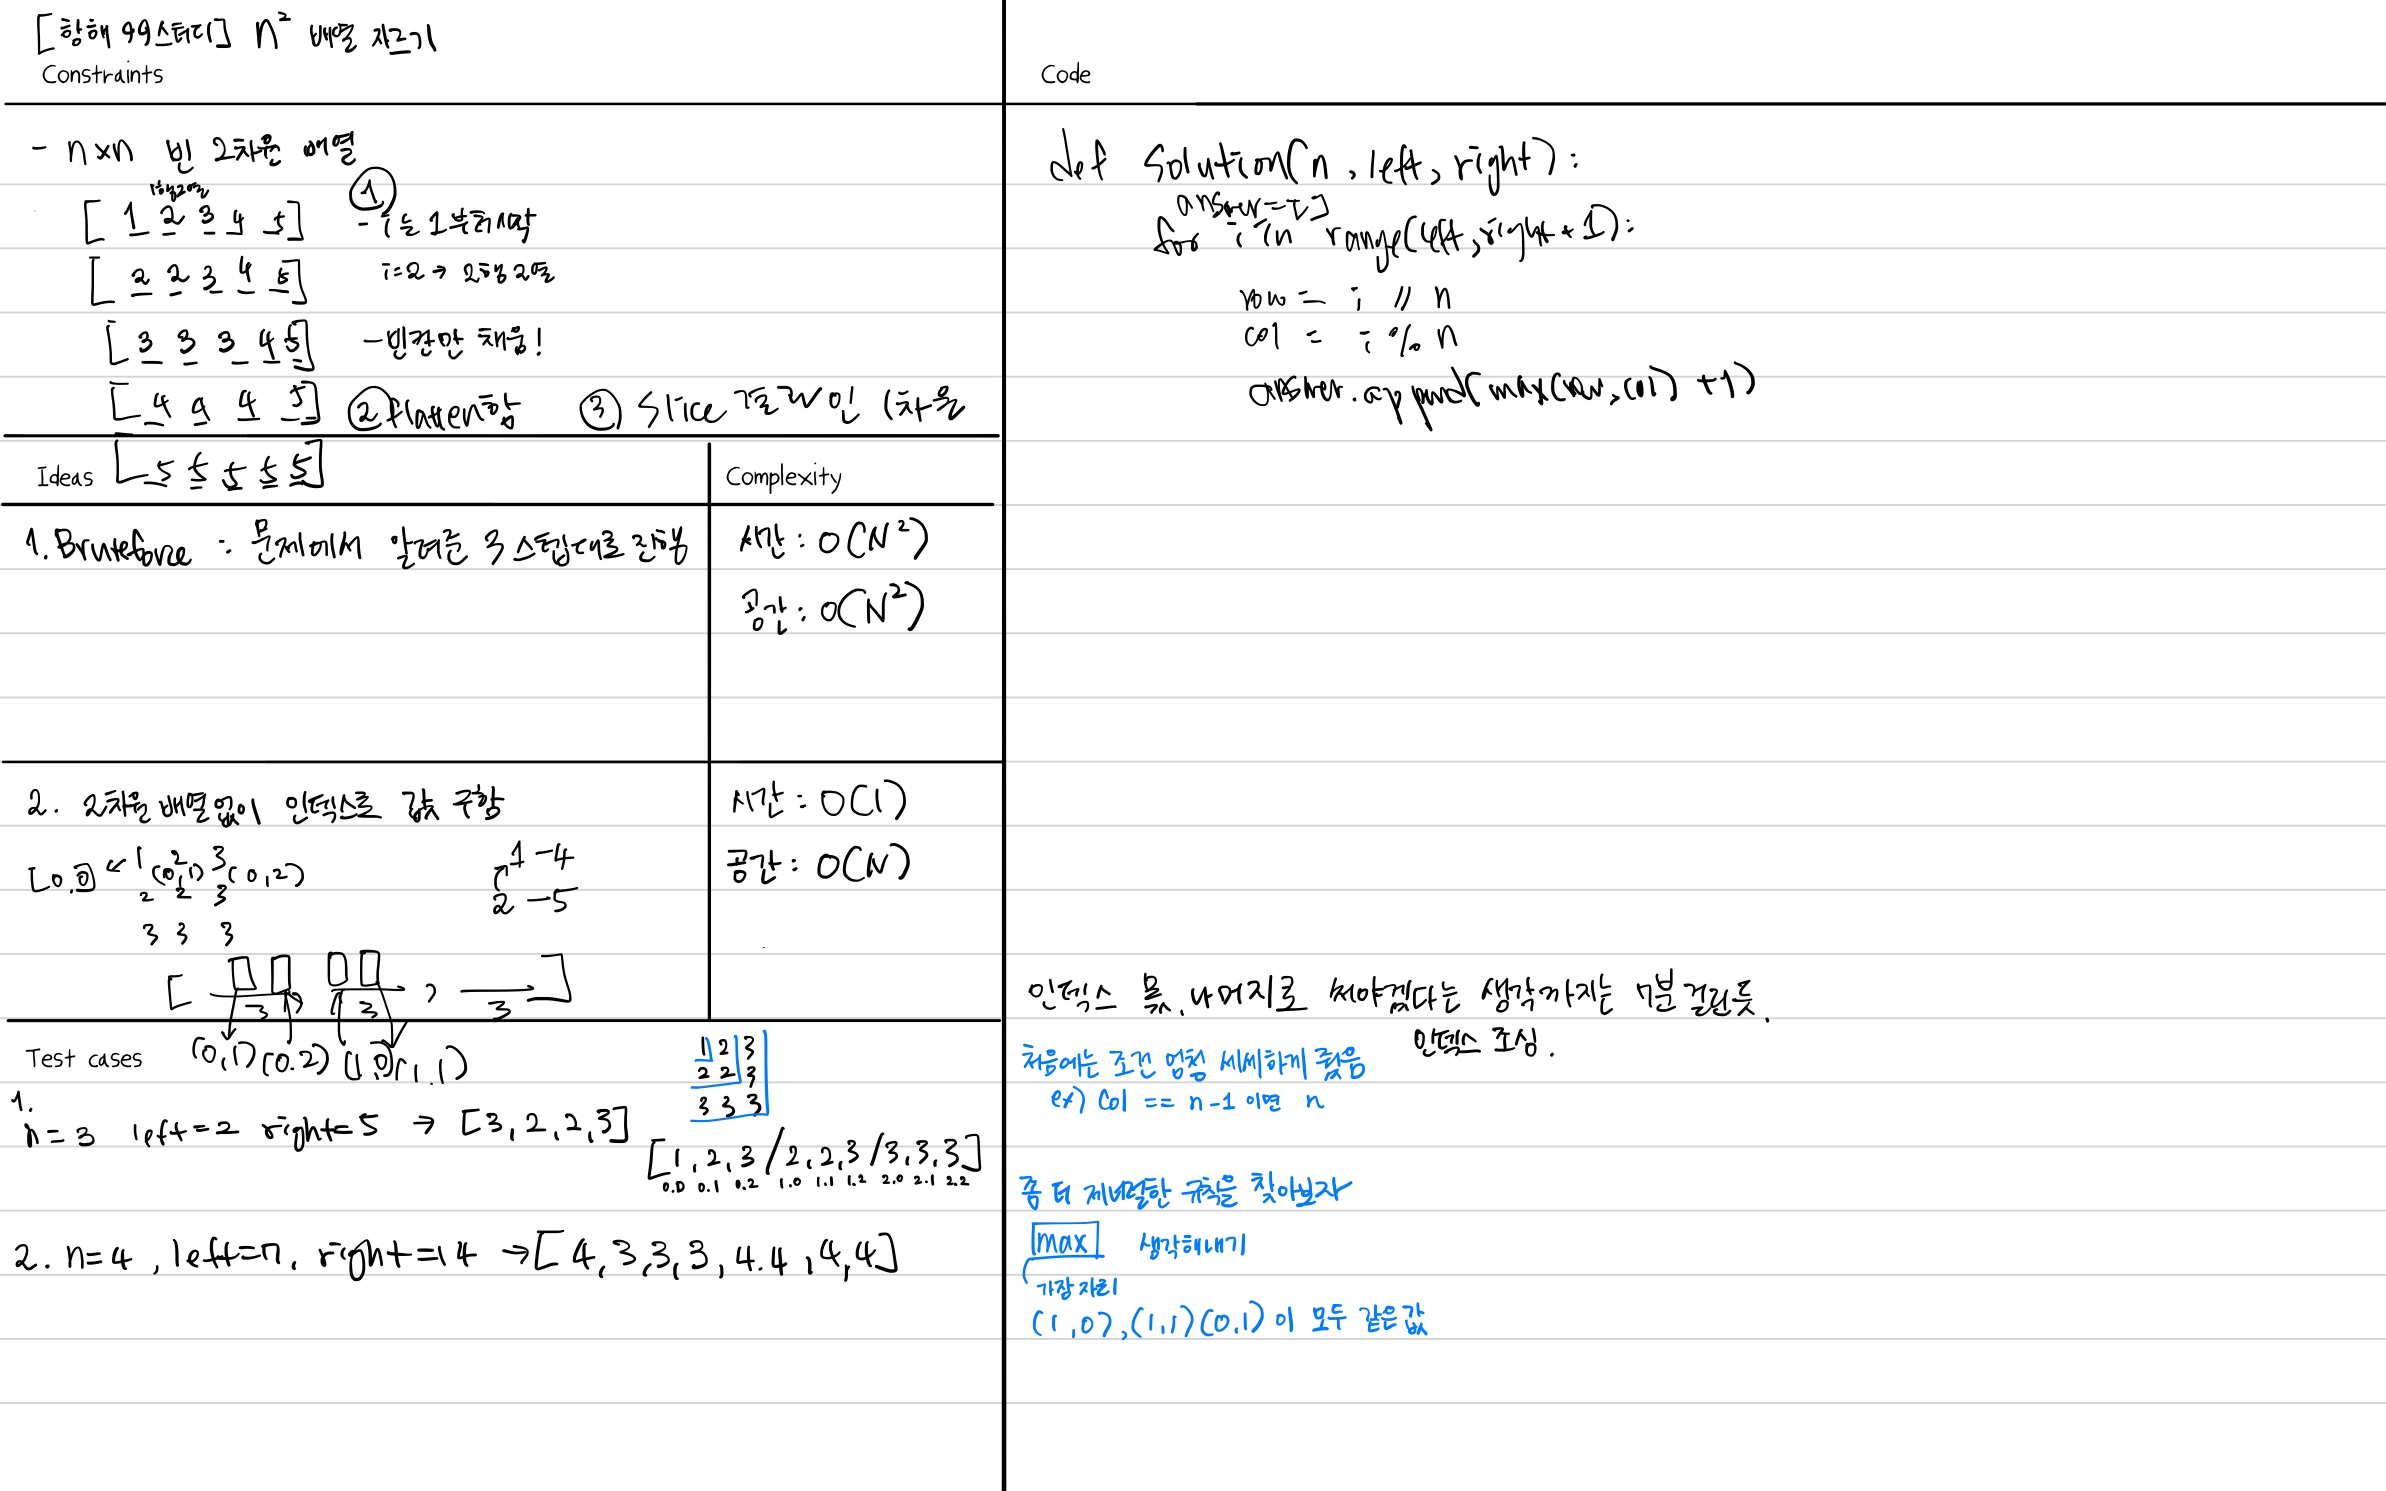 [항해 99스터디] n² 배열 자르기
Constraints
- n×n 빈 2차원 배열
1행2열
[ 1 2 3 4 5]
①
- i는 1부터시작
[ 2 2 3 4 5]
i=2 → 2행 2열
[3 3 3 4 5]
- 빈칸만 채움!
[4 4 4 5]
② flatten함
③ Slice 결과인 1차원
Ideas
[5 5 5 5 5]
Complexity
1. Bruteforce : 문제에서 알려준 3 스텝대로 진행
시간 : O(N²)
공간 : O(N²)
2. 2차원 배열 없이 인덱스로 값 구함
시간 : O(1)
공간 : O(N)
[0.0] ← 1 2 3
(0,1) (0,2)
2 2 3
3 3 3
1 - 4
2 - 5
[ 3 3 , 3 ]
(0,1) (0.2) (1,0) (1,1)
Test cases
1 2 3
2 2 3
3 3 3
1.
n=3 left=2 right=5 → [3,2,2,3]
[1,2,3/2,2,3/3,3,3]
0.0 0.1 0.2 1.0 1.1 1.2 2.0 2.1 2.2
2. n=4, left=7, right=14 → [4,3,3,3,4.4,4,4]
Code
def solution(n, left, right):
answer=[]
for i in range(left,right+1):
row = i // n
col = i % n
answer.append(max(row,col) +1)
인덱스 몫, 나머지로 써야겠다는 생각까지는 7분 걸린듯.
인덱스 조심.
처음에는 조건 엄청 세세하게 줬음
ex) col == n-1 이면 n
좀 더 제너럴한 규칙을 찾아보자
max 생각해내기
가장자리
(1,0),(1,1)(0,1) 이 모두 같은값